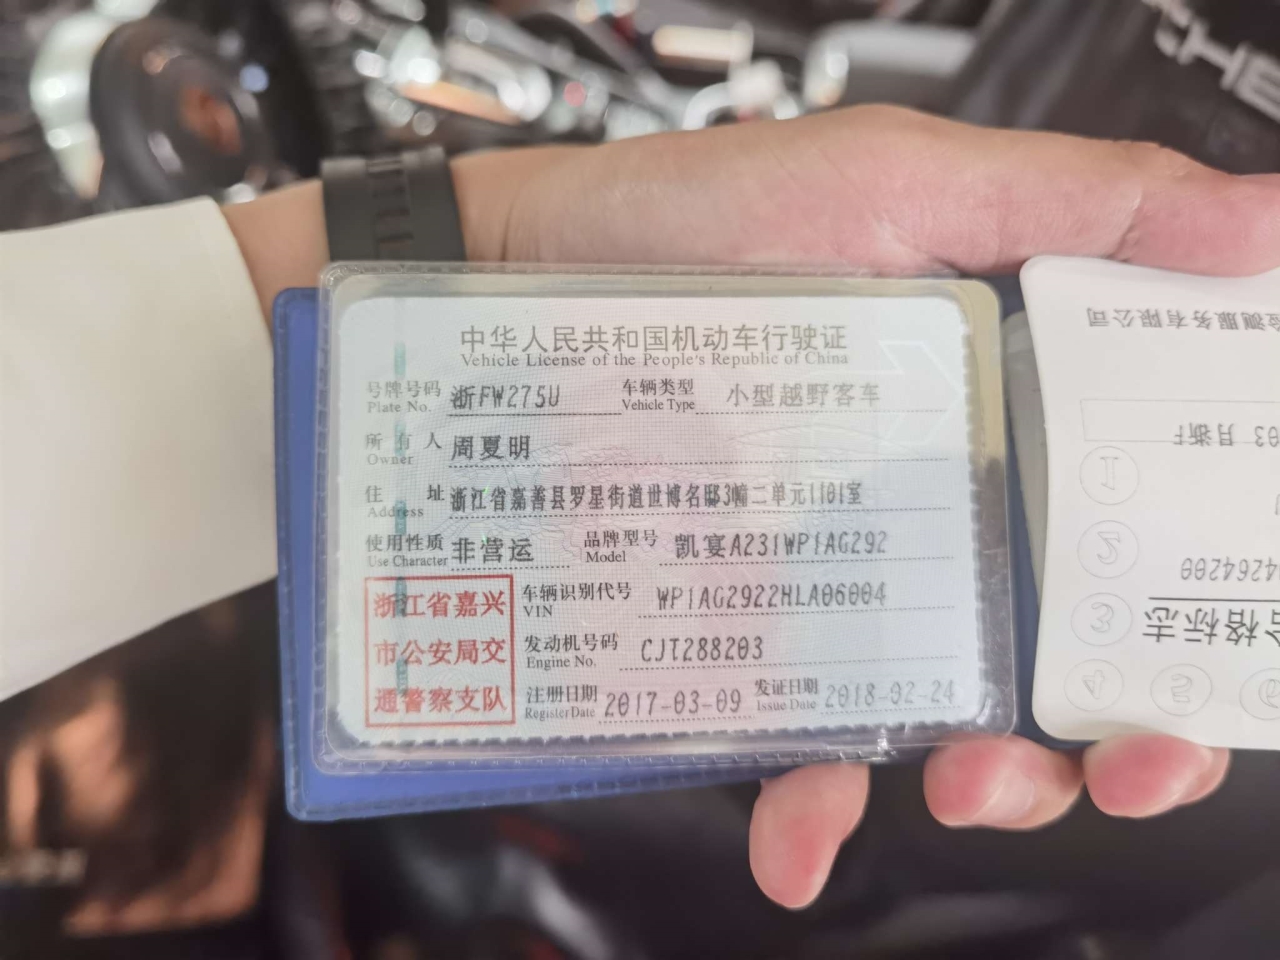 中华人民共和国机动车行驶证
Vehicle License of the People's Republic of China
号牌号码 浙FW275U 车辆类型 小型越野客车
Plate No. Vehicle Type
所有人 周夏明
Owner
住址 浙江省嘉善县罗星街道世博名邸3幢二单元1101室
Address
使用性质 非营运 品牌型号 凯宴A231WP1AG292
Use Character Model
浙江省嘉兴
市公安局交
通警察支队
车辆识别代号 WP1AG2922HLA06004
VIN
发动机号码 CJT288203
Engine No.
注册日期 2017-03-09 发证日期 2018-02-24
Register Date Issue Date
检测服务有限公司
03 月 浙F
4264200
合格标志
1
2
3
4
5
6